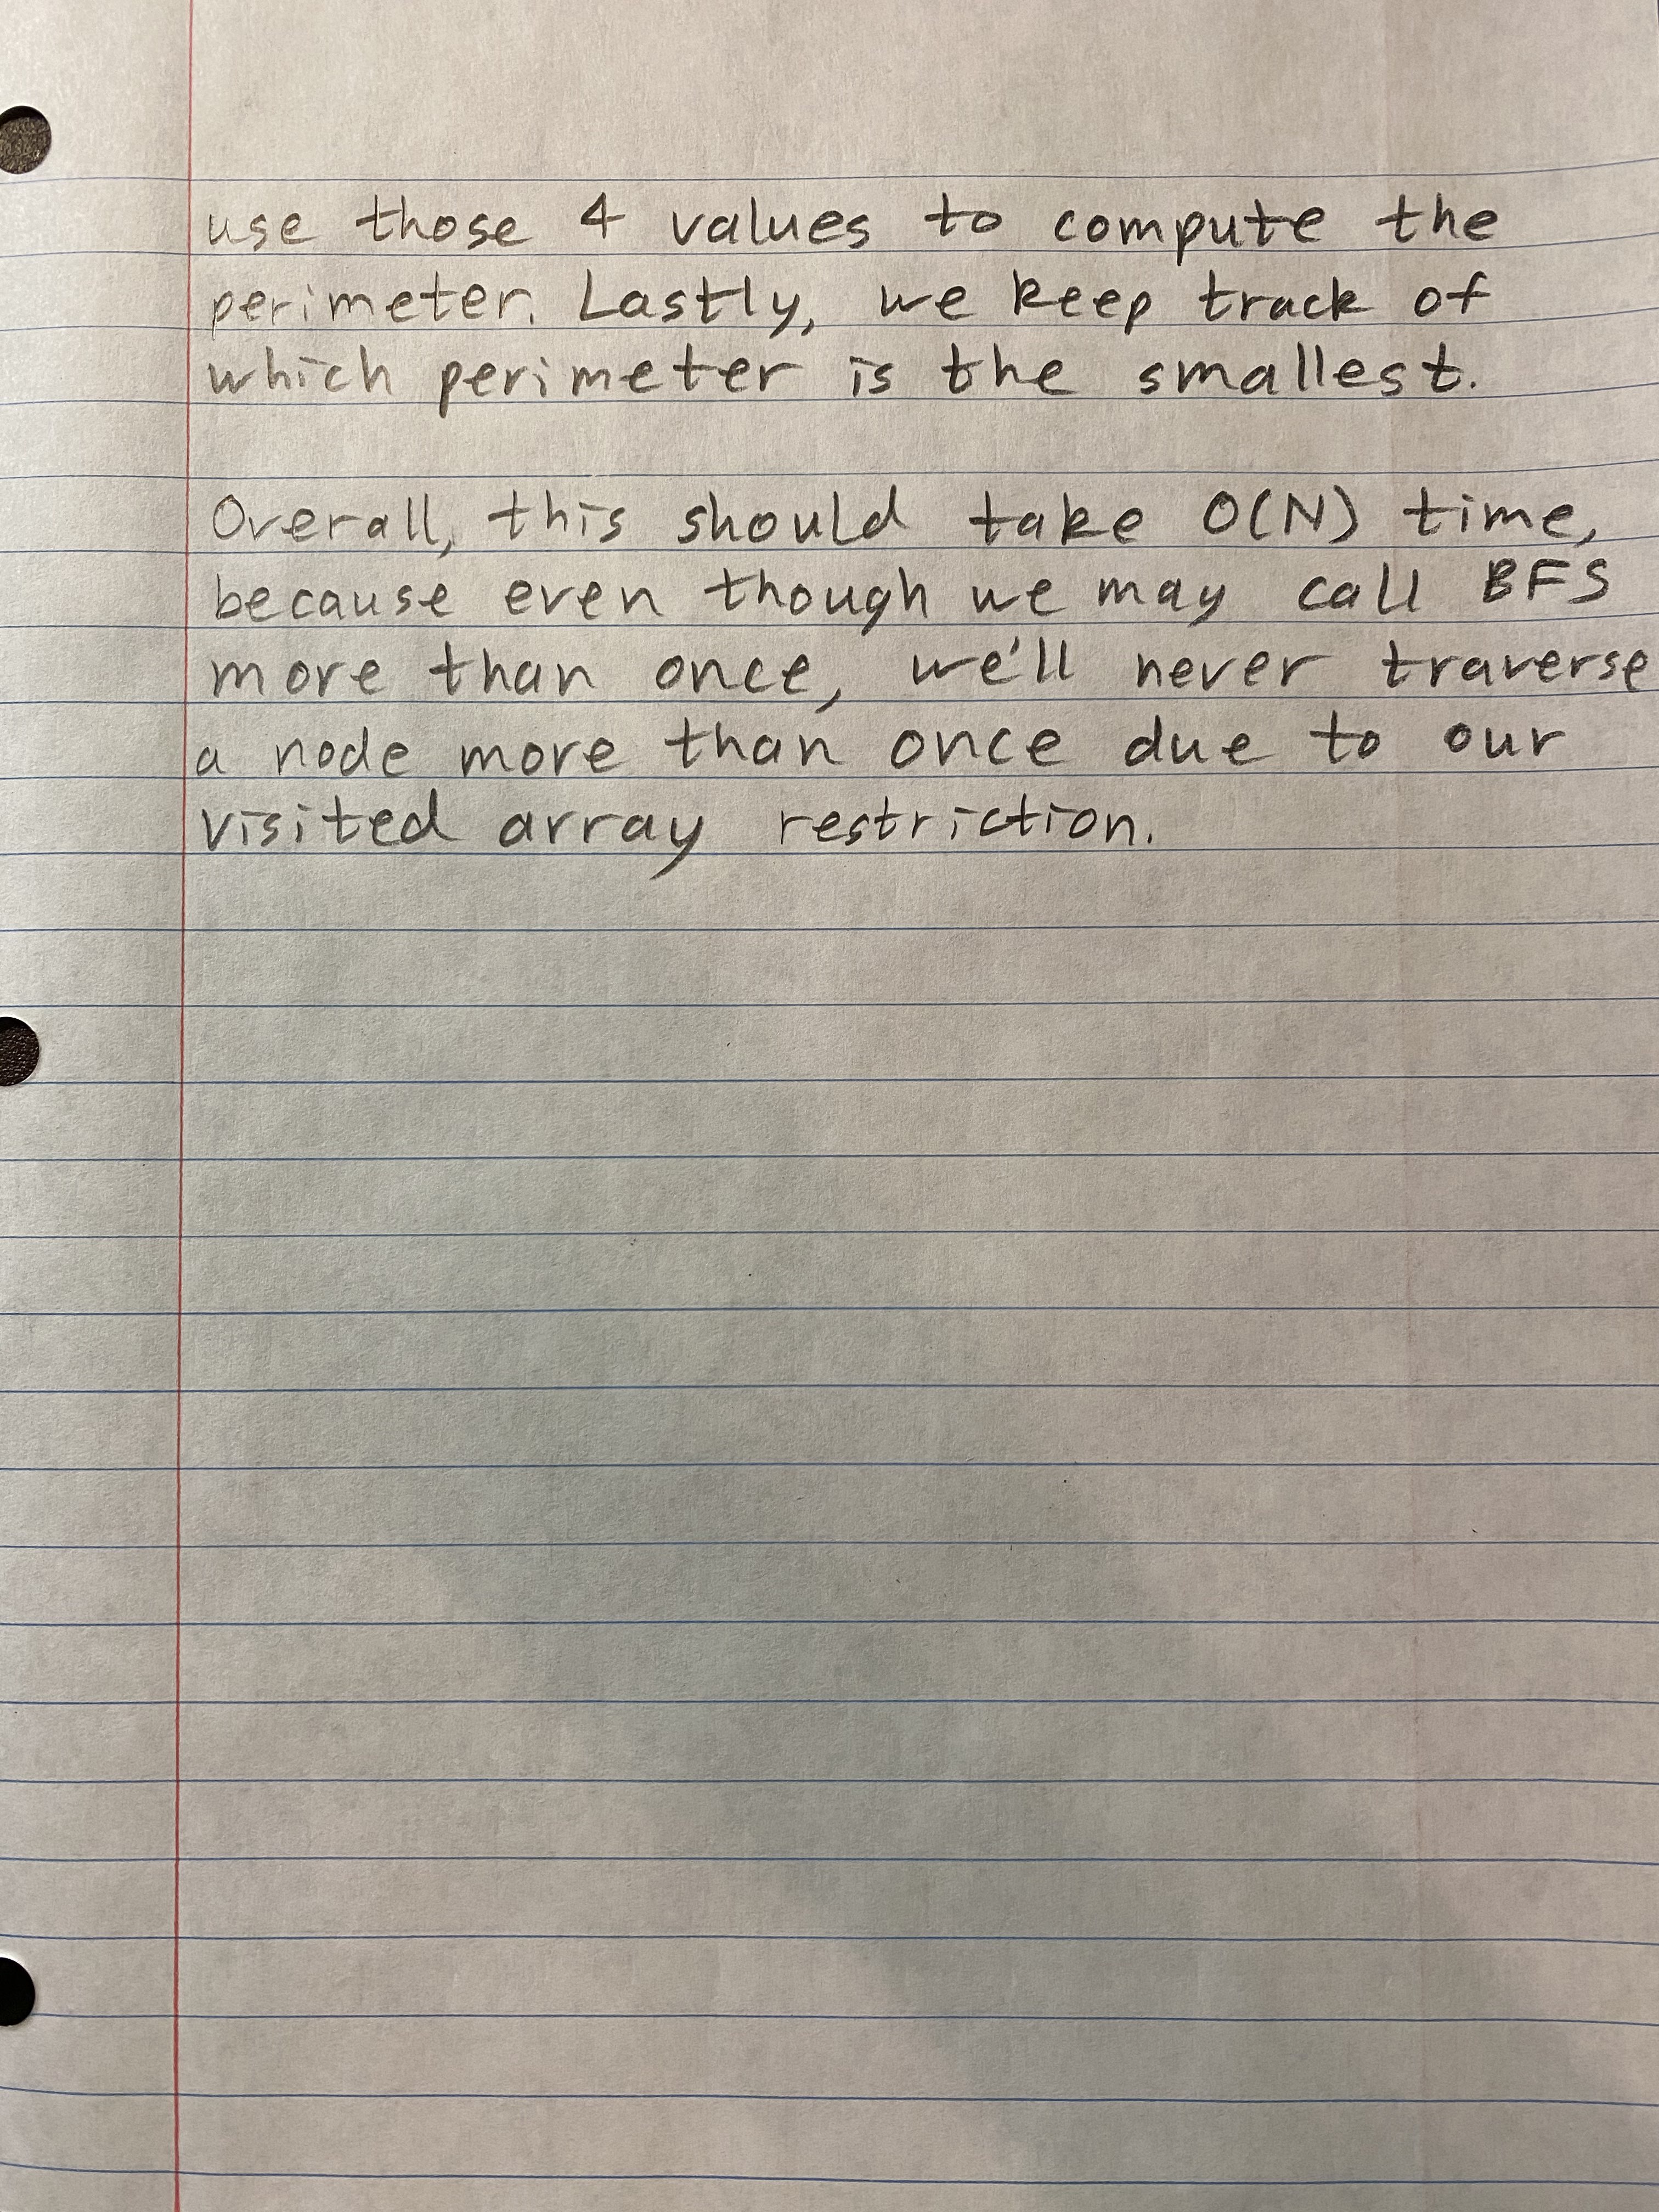 use those 4 values to compute the
perimeter. Lastly, we keep track of
which perimeter is the smallest.
Overall, this should take O(N) time,
because even though we may call BFS
more than once, we'll never traverse
a node more than once due to our
visited array restriction.